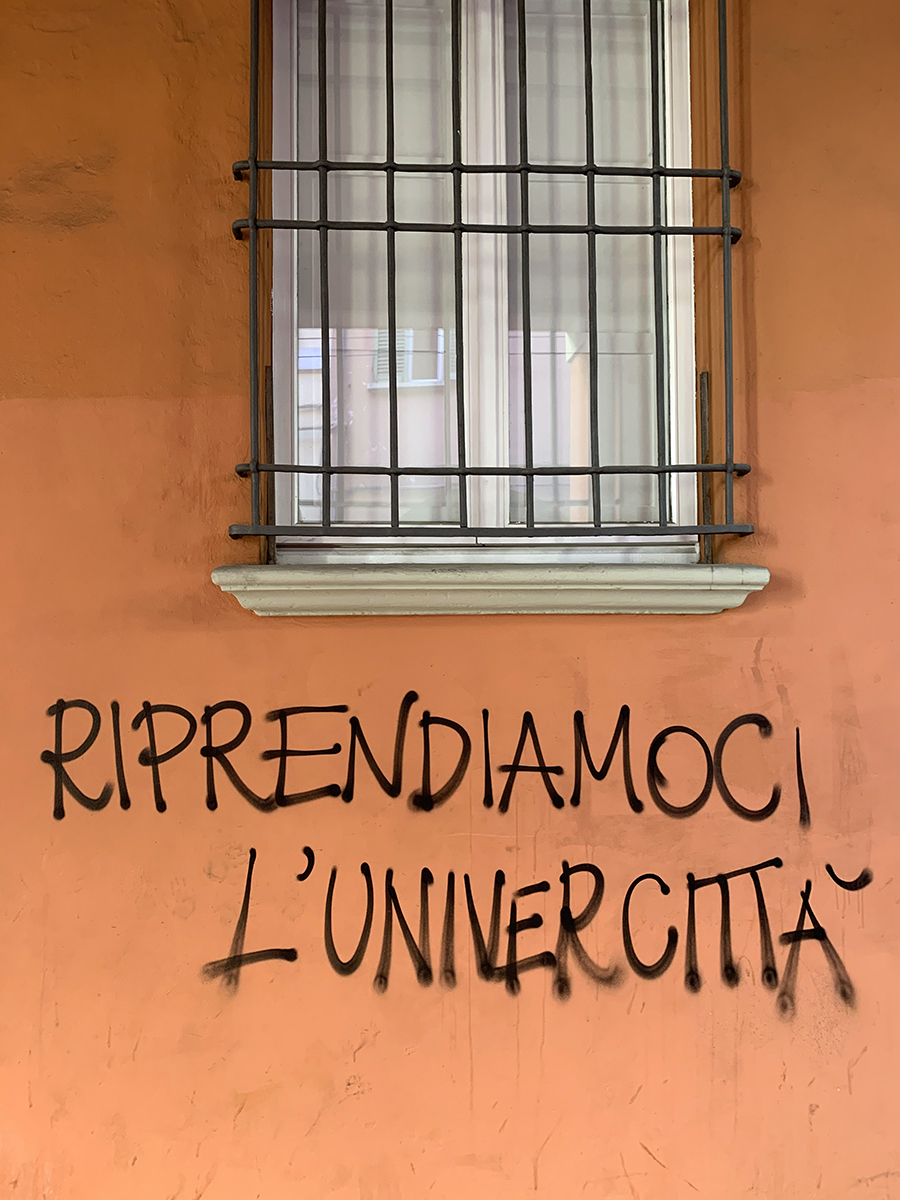 RIPRENDIAMOCI
L'UNIVERCITTÀ